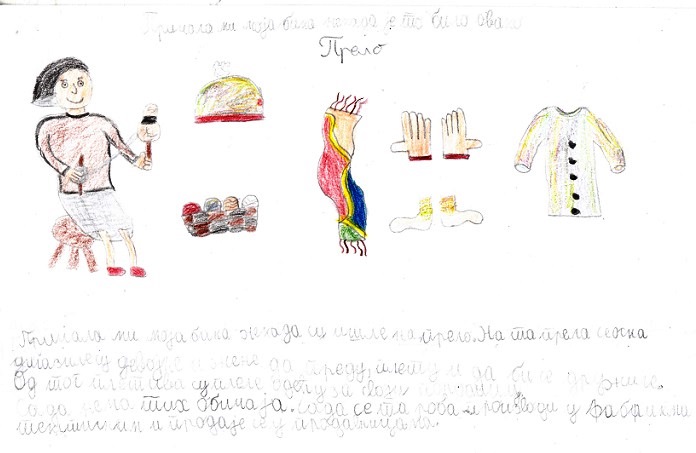 Причала ми моја бика некада је то било овако
Прело
Причала ми моја бика некада су ишле на прело. На та прела сеоска
долазилесу девојке и жене да преду, плету и да би се дружиле.
Од тог плетива су плеле одећу за своју породицу.
Сада нема тих обичаја. сада се та роба производи у фабрикни
текстилним и продаје се у продавницама.